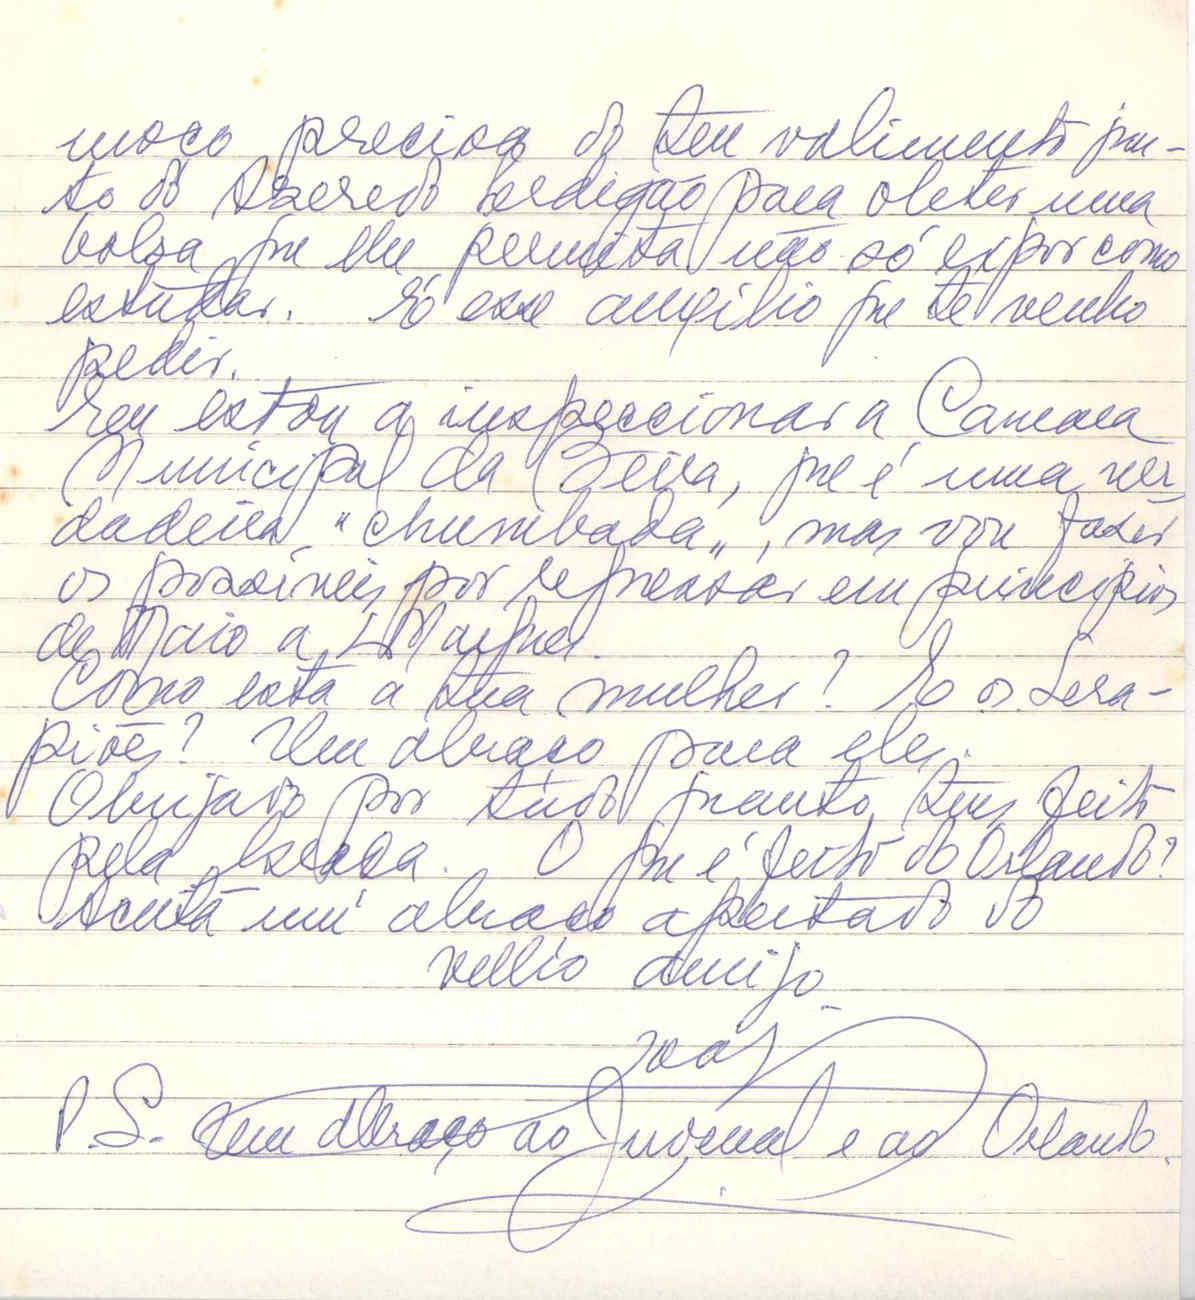 moço precisa do teu valimento jun-
to do Azeredo Perdigão para obter uma
bolsa que lhe permita não só expor como
estudar. É esse auxílio que te venho
pedir.
Eu estou a inspeccionar a Camara
Municipal da Beira, que é uma ver-
dadeira "chumbada", mas vou fazer
os possíveis por regressar em princípios
de Maio a L. Marques.
Como está a tua mulher? E os Sera-
piões? Um abraço para eles.
Obrigado por tudo quanto tens feito
pela . O que é feito do Orlando?
Aceita um abraço apertado do
velho amigo
João
P.S. Um abraço ao Juvenal e ao Orlando.